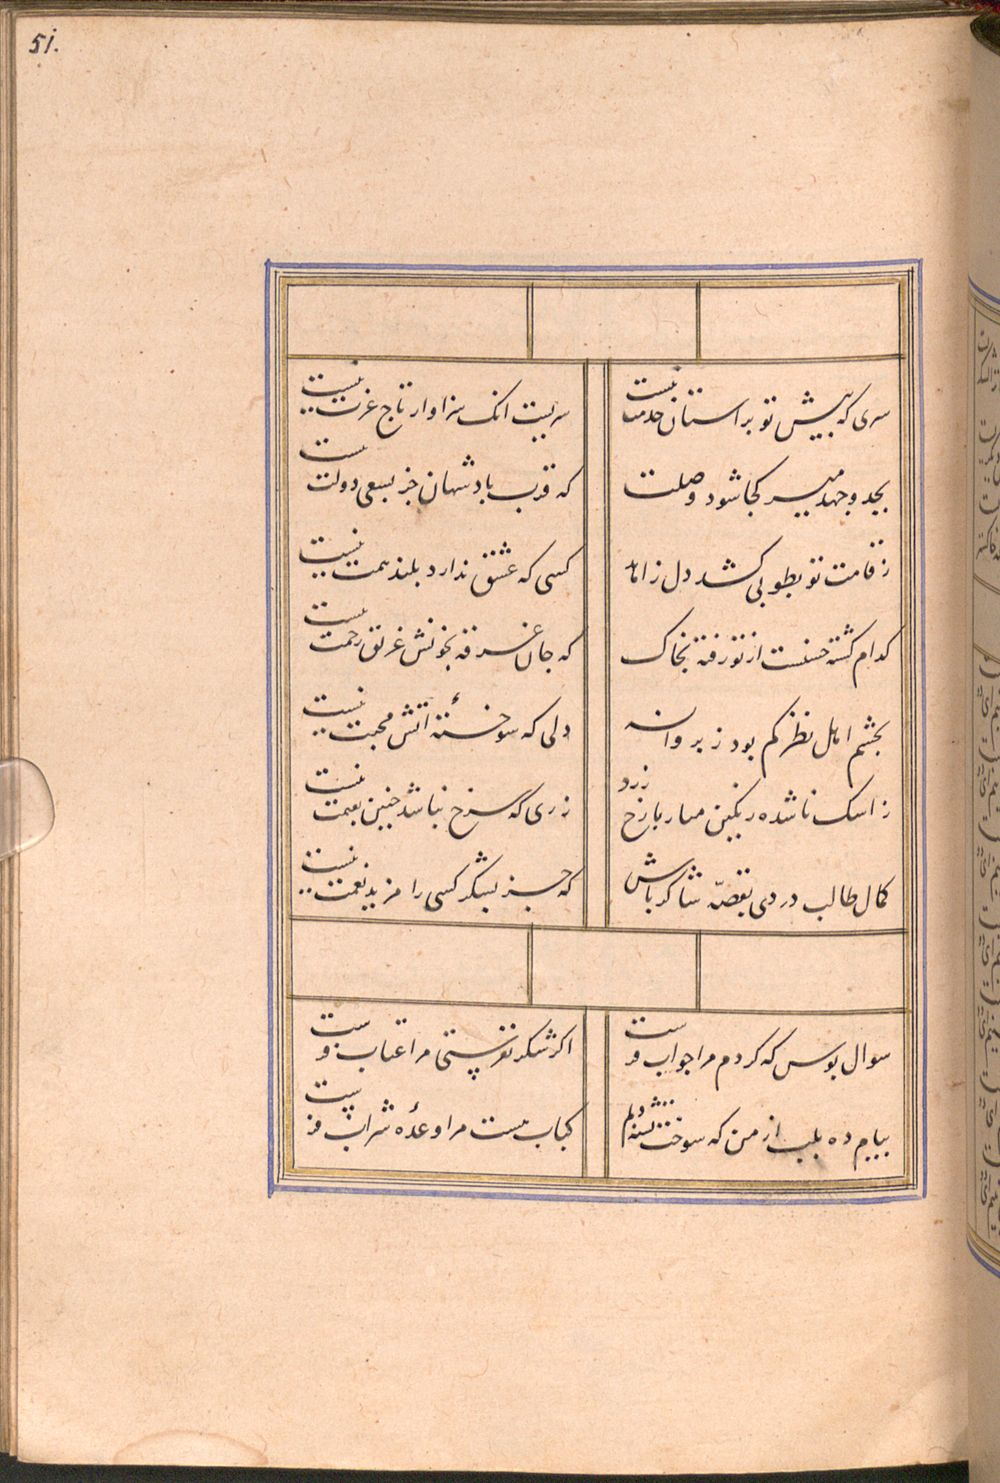 51.
سری که پیش تو بر استان خدمت نیست
سریست انک سزاوار تاج عزت نیست
بجد و جهد میسر کجا شود وصلت
که قرب بادشهان جز بسعی دولت نیست
ز قامت تو بطوبی کشد دل زاهد
کسی که عشق ندارد بلند همت نیست
کدام کشته حسنست از تو رفته بخاک
که جان غرقه بخونش غریق رحمت نیست
بچشم اهل نظر کم بود ز پروانه
دلی که سوختهٔ اتش محبت نیست
ز اشک ناشده رنگین میار با رخ زرد
زری که سرخ نباشد چنین بقیمت نیست
کمال طالب دردی بقصّه شاکر باش
که جز بشکر کسی را مزید نعمت نیست
سوال بوس که کردم مرا جواب فرست
اکر شکر نفرستی مرا عتاب فرست
پیام ده بلب از من که سوخت تشنه دلم
کباب هست مرا وعدهٔ شراب فرست